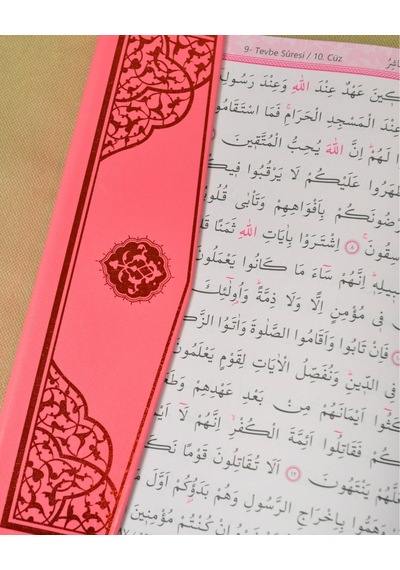 9- Tevbe Sûresi / 10. Cüz
عَهْدٌ عِنْدَ اللّٰهِ وَعِنْدَ
عِنْدَ الْمَسْجِدِ الْحَرَامِۚ فَمَا اسْتَقَامُوا
لَهُمْۜ اِنَّ اللّٰهَ يُحِبُّ الْمُتَّقٖينَ
عَلَيْكُمْ لَا يَرْقُبُوا
بِاَفْوَاهِهِمْ وَتَأْبٰى
﴿٨﴾ اِشْتَرَوْا بِاٰيَاتِ اللّٰهِ ثَمَنًا
اِنَّهُمْ سَٓاءَ مَا كَانُوا يَعْمَلُونَ
فٖي مُؤْمِنٍ اِلًّا وَلَا ذِمَّةًۜ وَاُو۬لٰٓئِكَ
فَاِنْ تَابُوا وَاَقَامُوا الصَّلٰوةَ وَاٰتَوُا
فِي الدّٖينِۜ وَنُفَصِّلُ الْاٰيَاتِ لِقَوْمٍ يَعْلَمُونَ
اَيْمَانَهُمْ مِنْ بَعْدِ عَهْدِهِمْ
فَقَاتِلُٓوا اَئِمَّةَ الْكُفْرِۙ اِنَّهُمْ لَٓا
يَنْتَهُونَ ﴿١٢﴾ اَلَا تُقَاتِلُونَ قَوْمًا
وَهَمُّوا بِاِخْرَاجِ الرَّسُولِ وَهُمْ بَدَؤُ۫كُمْ اَوَّلَ
اِنْ كُنْتُمْ مُؤْمِنٖينَ